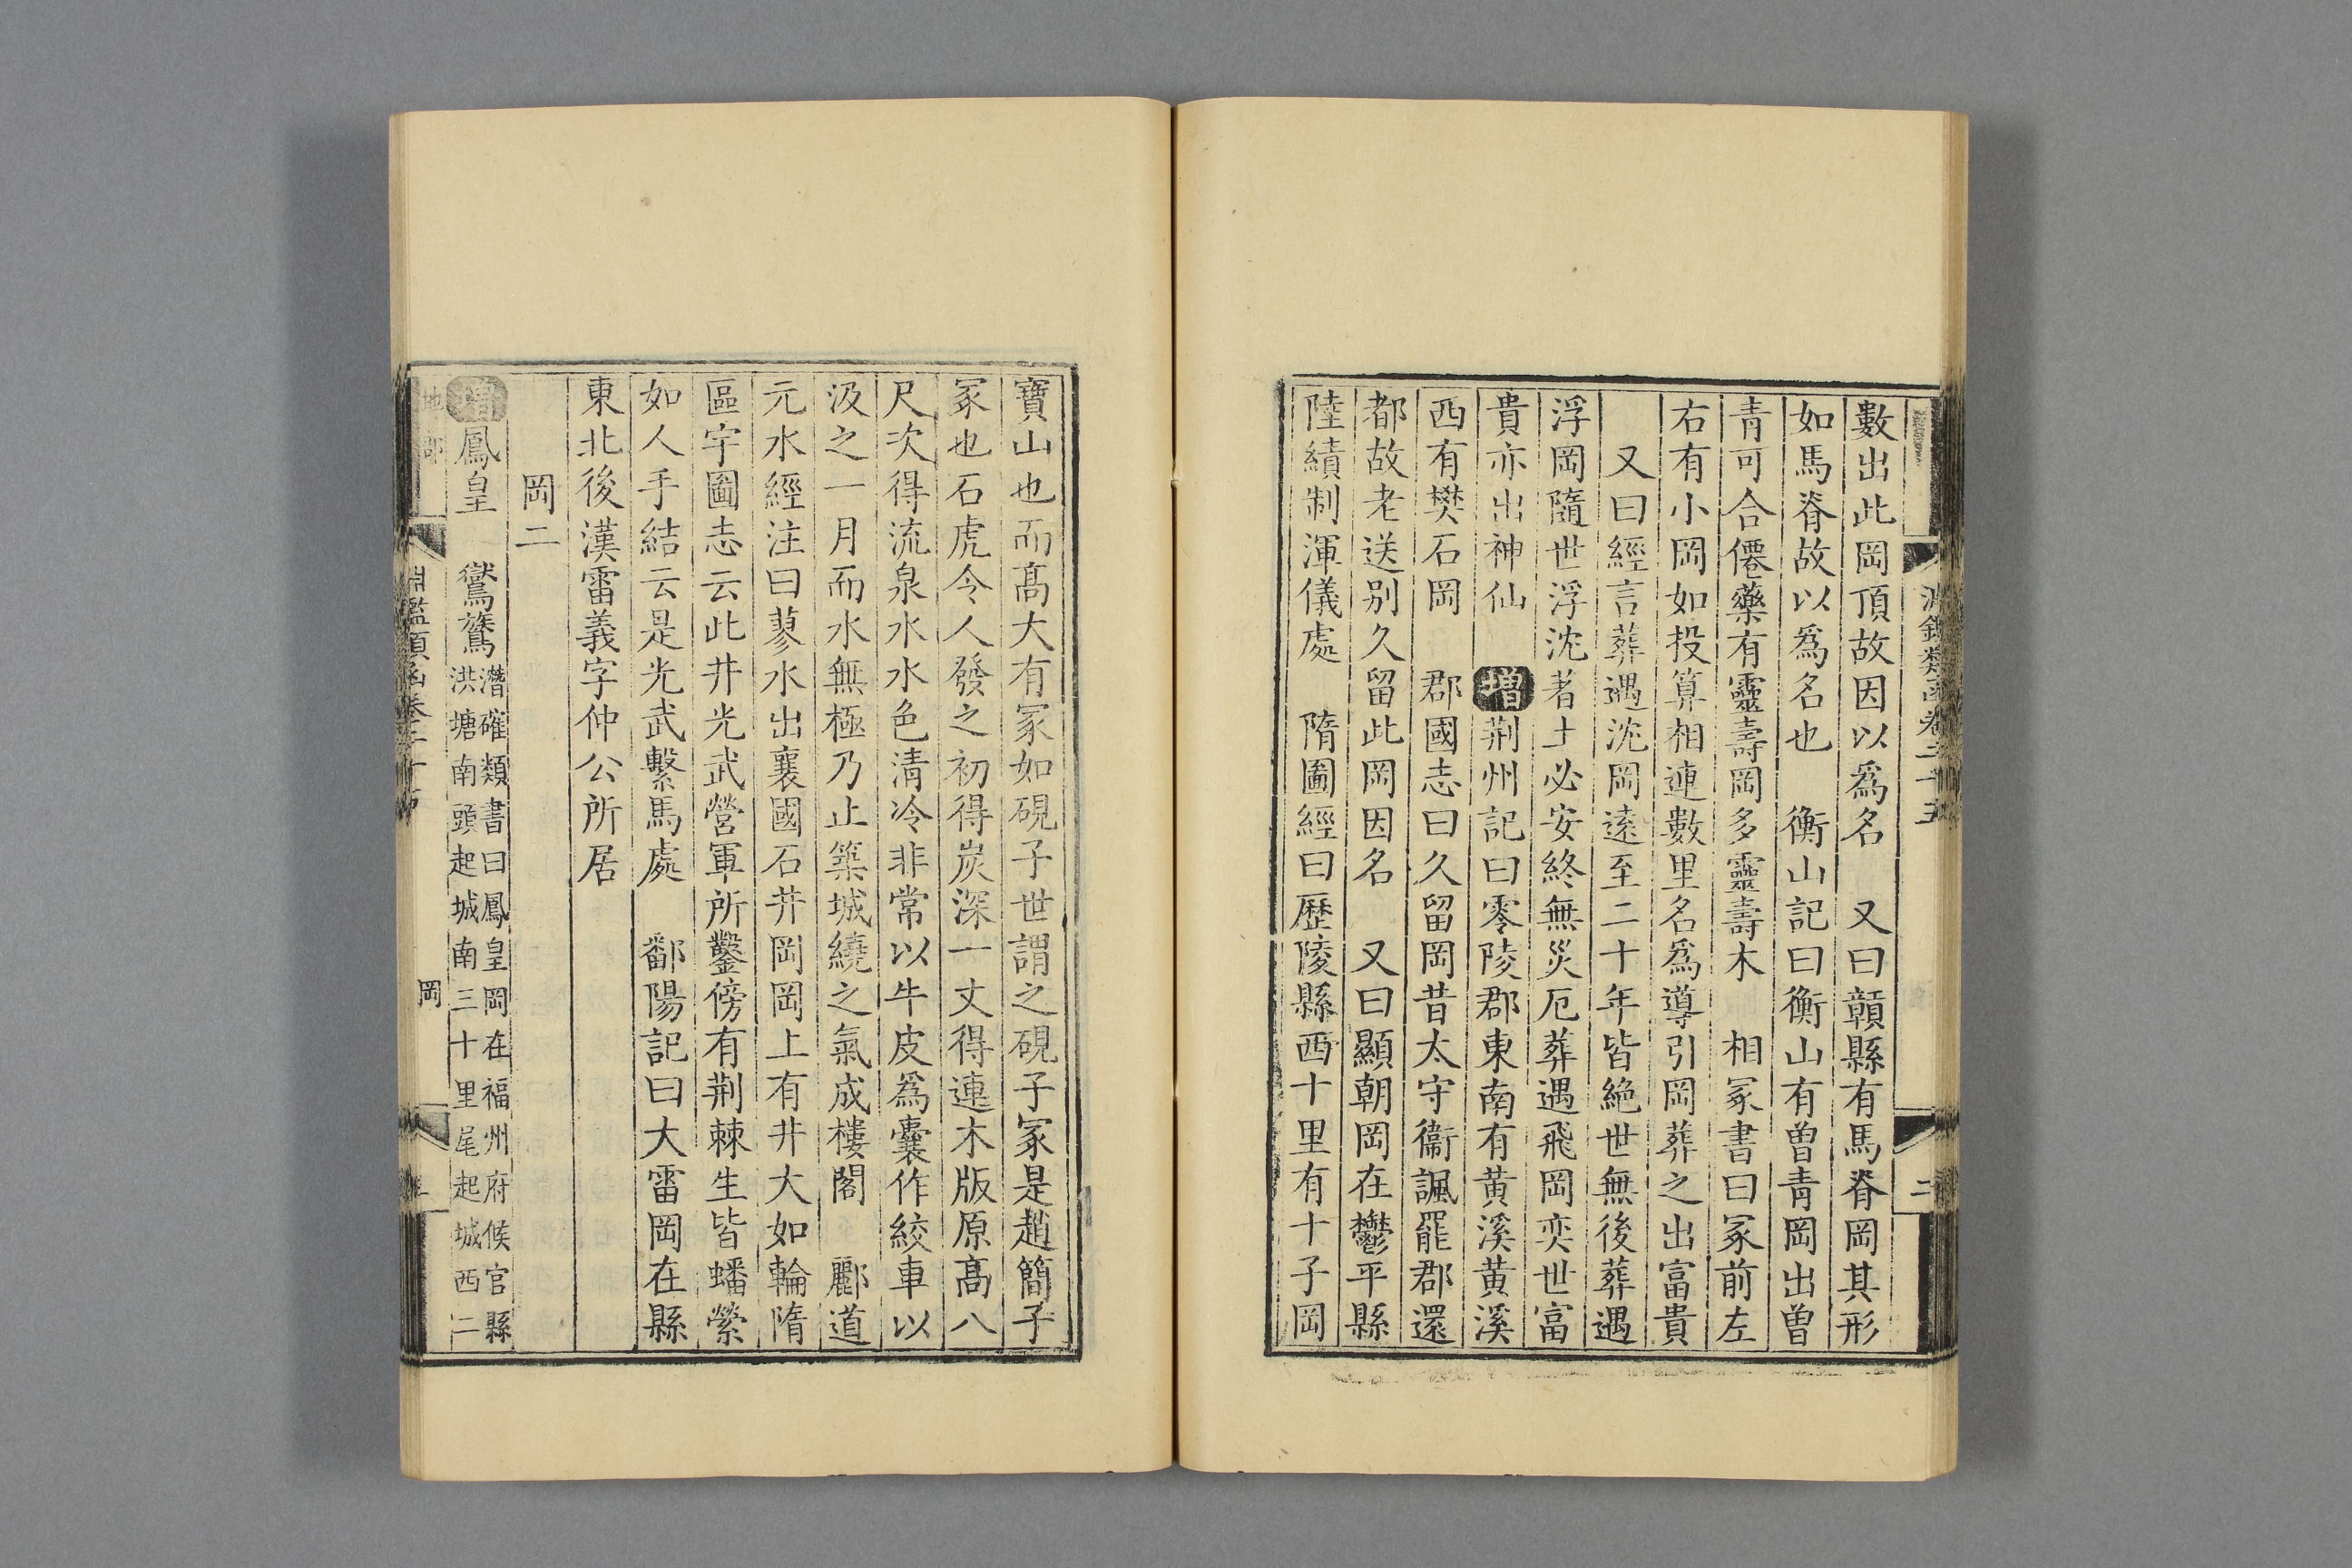 數出此岡頂故因以爲名　又曰贑縣有馬脊岡其形
如馬脊故以爲名也　衡山記曰衡山有曽青岡出曽
青可合僊藥有靈壽岡多靈壽木　相冢書曰冢前左
右有小岡如投算相連數里名爲導引岡葬之出富貴
又曰經言葬遇沈岡遠至二十年皆絶世無後葬遇
浮岡隨世浮沈著土必安終無災厄葬遇飛岡奕世富
貴亦出神仙　增荆州記曰零陵郡東南有黃溪黃溪
西有樊石岡　郡國志曰久留岡昔太守衞諷罷郡還
都故老送别久留此岡因名　又曰顯朝岡在鬱平縣
陸績制渾儀處　隋圖經曰歷陵縣西十里有十子岡
寶山也而髙大有冢如硯子世謂之硯子冢是趙簡子
冢也石虎令人發之初得炭深一丈得連木版原髙八
尺次得流泉水水色清冷非常以牛皮爲囊作絞車以
汲之一月而水無極乃止築城繞之氣成樓閣　酈道
元水經注曰蓼水出襄國石井岡岡上有井大如輪隋
區宇圖志云此井光武營軍所鑿傍有荆棘生皆蟠縈
如人手結云是光武繫馬處　鄱陽記曰大雷岡在縣
東北後漢雷義字仲公所居
岡二
增鳳皇　鸑鷟潛確類書曰鳳皇岡在福州府候官縣
洪塘南頭起城南三十里尾起城西二
地部　淵鑑類函卷二十五　岡